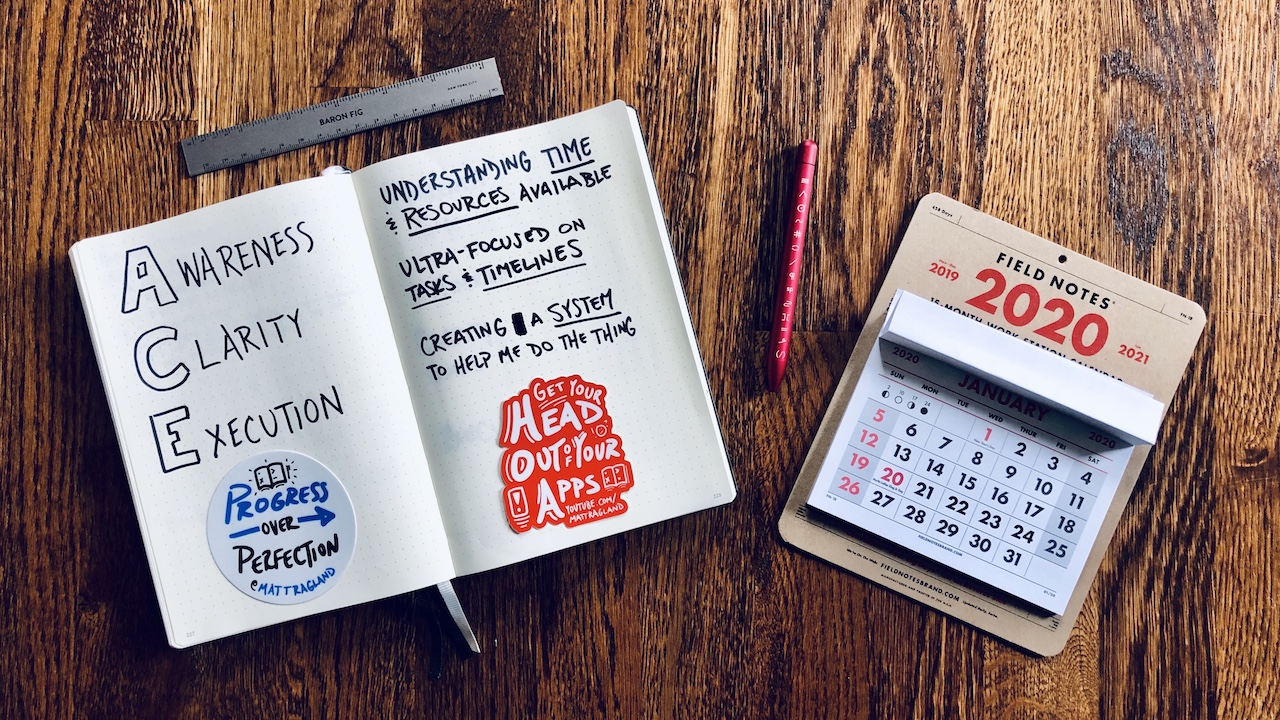 BARON FIG
NEW YORK CITY
AWARENESS
CLARITY
EXECUTION
PROGRESS
OVER
PERFECTION
@MATTRAGLAND
UNDERSTANDING TIME
& RESOURCES AVAILABLE
ULTRA-FOCUSED ON
TASKS & TIMELINES
CREATING A SYSTEM
TO HELP ME DO THE THING
GET YOUR
HEAD
OUT OF YOUR
APPS
YOUTUBE.COM/
MATTRAGLAND
FIELD NOTES
2019 2020 2021
15-MONTH WORK STATION CALENDAR
2020 JANUARY 2020
SUN MON TUE WED THUR FRI SAT
1 2 3 4
5 6 7 8 9 10 11
12 13 14 15 16 17 18
19 20 21 22 23 24 25
26 27 28 29 30 31
FIELDNOTESBRAND.COM
FIELDNOTESBRAND.COM